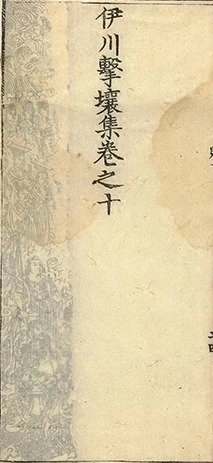 伊川擊壤集卷之十